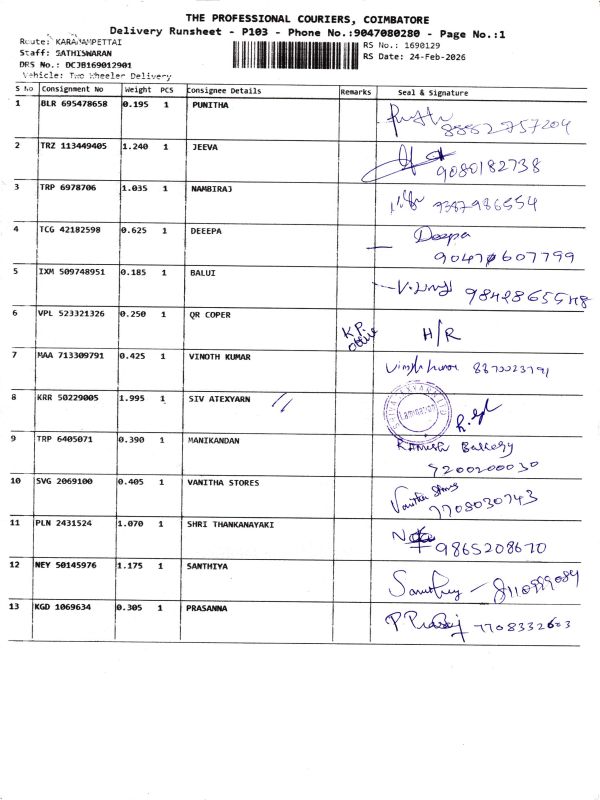 THE PROFESSIONAL COURIERS, COIMBATORE
Delivery Runsheet - P103 - Phone No.:9047080280 - Page No.:1
Route: KARANAMPETTAI
RS No.: 1690129
Staff: SATHISWARAN
RS Date: 24-Feb-2026
DRS No.: DCJB169012901
Vehicle: Two Wheeler Delivery
S No Consignment No Weight PCS Consignee Details Remarks Seal & Signature
1 BLR 695478658 0.195 1 PUNITHA
8882757204
2 TRZ 113449405 1.240 1 JEEVA
9080182738
3 TRP 6978706 1.035 1 NAMBIRAJ
9387986554
4 TCG 42182598 0.625 1 DEEEPA Deepa
607799
5 IXM 509748951 0.185 1 BALUI
6 VPL 523321326 0.250 1 QR COPER K.P. office H/R
7 MAA 713309791 0.425 1 VINOTH KUMAR 8870023791
8 KRR 50229005 1.995 1 SIV ATEXYARN
Lamination
9 TRP 6405071 0.390 1 MANIKANDAN Ramesh Bakery
9200200030
10 SVG 2069100 0.405 1 VANITHA STORES Vanitha Stores
7708030743
11 PLN 2431524 1.070 1 SHRI THANKANAYAKI
9865208670
12 NEY 50145976 1.175 1 SANTHIYA
13 KGD 1069634 0.305 1 PRASANNA 7708332603